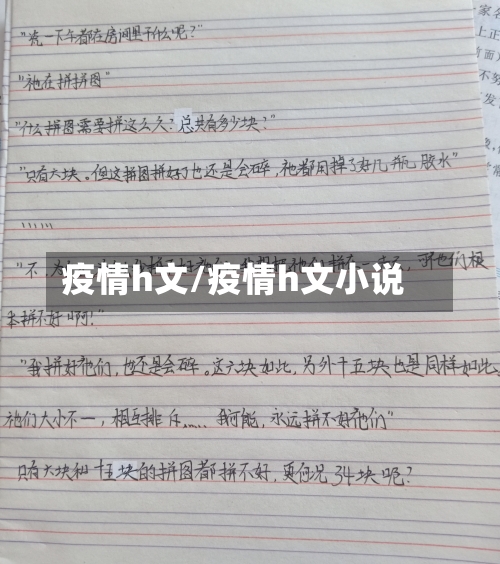 "祂一下午都在房间里干什么呢?"
"祂在拼拼图"
"什么拼图需要拼这么久?总共有多少块?"
"只有六块。但这拼图拼好了也还是会碎,祂都用掉了好几瓶胶水"
……
"不,
疫情h文/疫情h文小说
可它们根
本拼不好啊!"
"我拼好祂们,也还是会碎。这六块如此,另外十五块也是同样如此。
祂们大小不一,相互排斥……我可能,永远拼不好祂们"
只有六块和十五块的拼图都拼不好,更何况34块呢?
家名
上正
背面
不
发